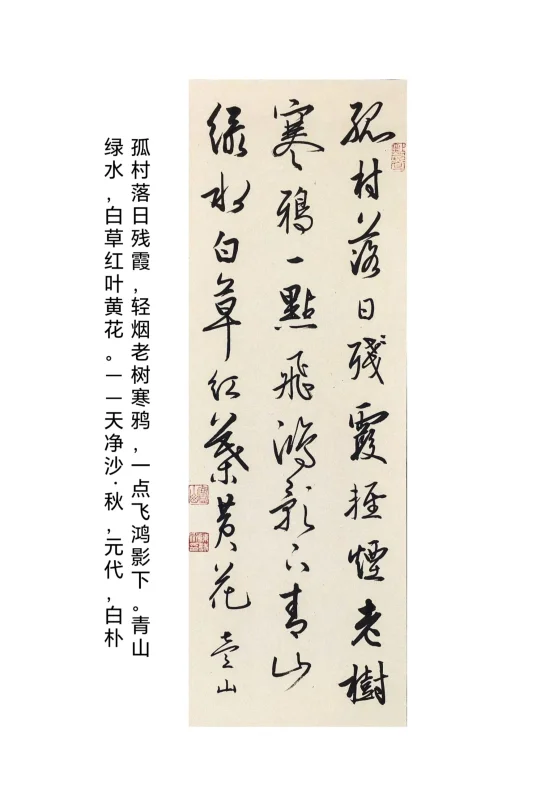 孤村落日殘霞輕煙老樹
寒鴉一點飛鴻影下青山
綠水白草紅葉黃花 壹山
孤村落日残霞,轻烟老树寒鸦,一点飞鸿影下。青山
绿水,白草红叶黄花。——天净沙·秋,元代,白朴